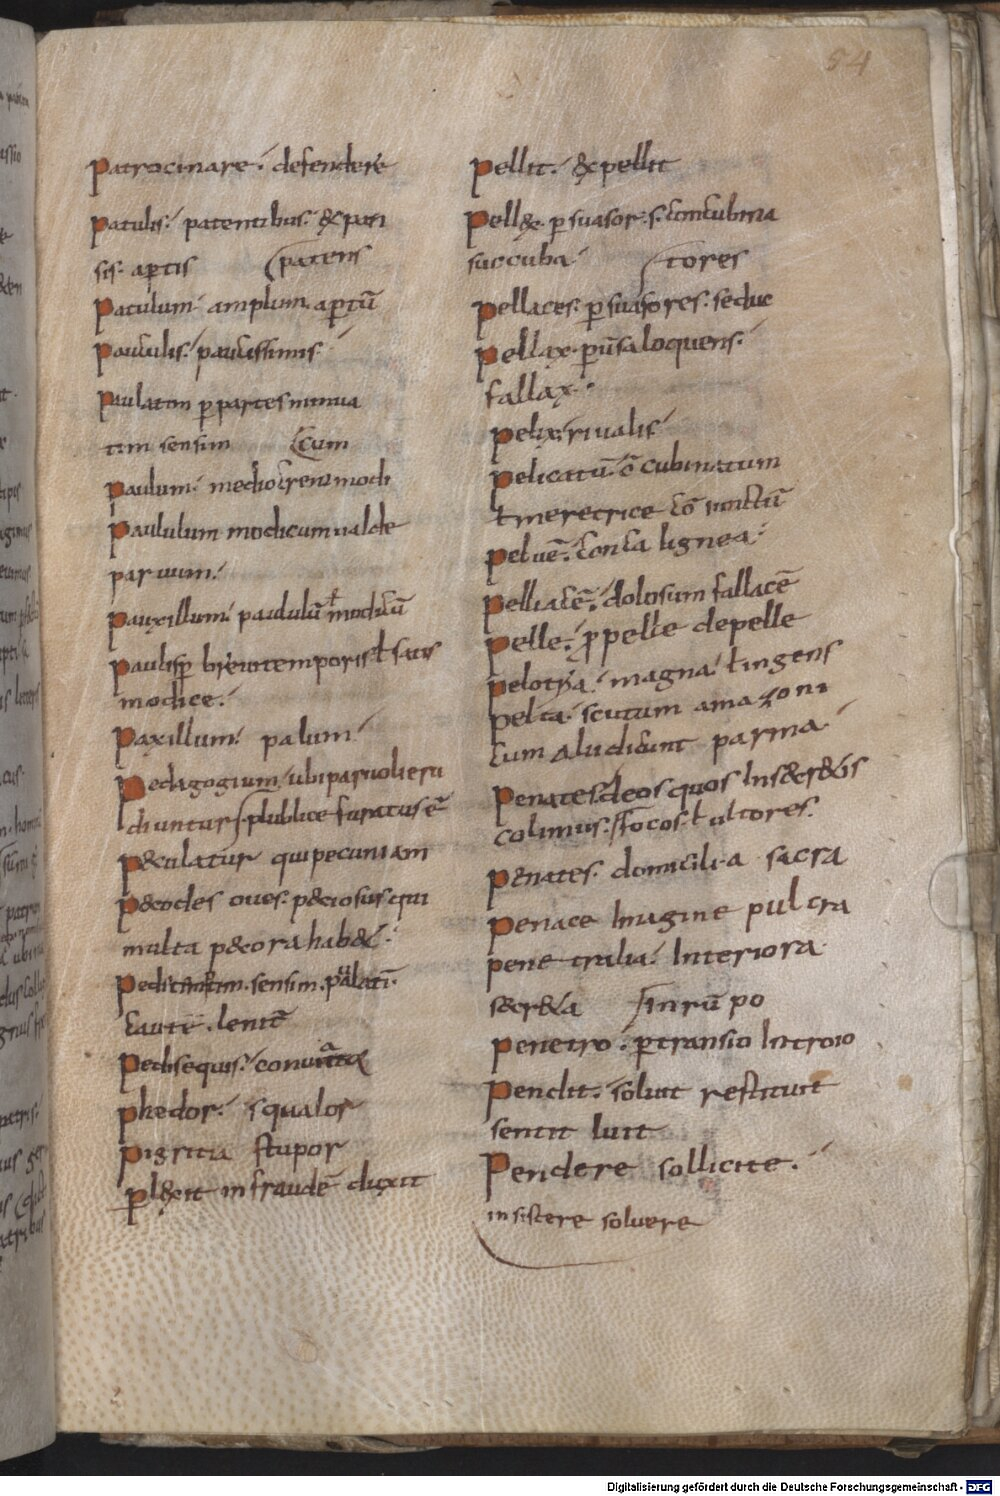 54
Patrocinare. defendere
Patulis. patentibus. &pan
sis. aptis (patens
Patulum. amplum. apertū
Paululis. paucissimis.
Paulatim p partes minua
tim sensim (cum
Paulum. mediocrem modi
Paululum modicum ualde
paruum.
Pauxillum. paululū ł modicū
Paulisp breui temporis ł satis
modice.
Paxillum. palum
Pedagogium, ubi paruoli eru
diuntur (publice furatus ē
P&culatur qui pecuniam
P&codes oues. p&corosus qui
multa p&cora hab&.
sensim.
caute. lente
Pedisequis.
Phedor. squalor
Pigritia stupor
Pl&xit in fraudē duxit
Pellit. &pellit
Pell&. p suasor. s. concubina
succuba (tores
Pellaces. p suasores. seduc
Pellax. loquens.
fallax.
Pelix. riualis
Pelicatū. cō cubinatum
ł meretrice cō iunctū
Peluē. conca lignea.
Pelliacē. dolosum fallacē
Pelle. ppelle depelle
magna ł ingens
Pelta. scutum amazoni
cum aludicunt parma
Penates. deos quos in secr&is
colimus. focos. ł ultores.
Penates. domicilia sacra
Penace Imagine pulcra
penetralia. Interiora
secr&a (inrūpo
Penetro. ptransio Introio
Pendit. soluit restituit
sentit luit
Pendere sollicite.
insistere soluere
Digitalisierung gefördert durch die Deutsche Forschungsgemeinschaft - DFG